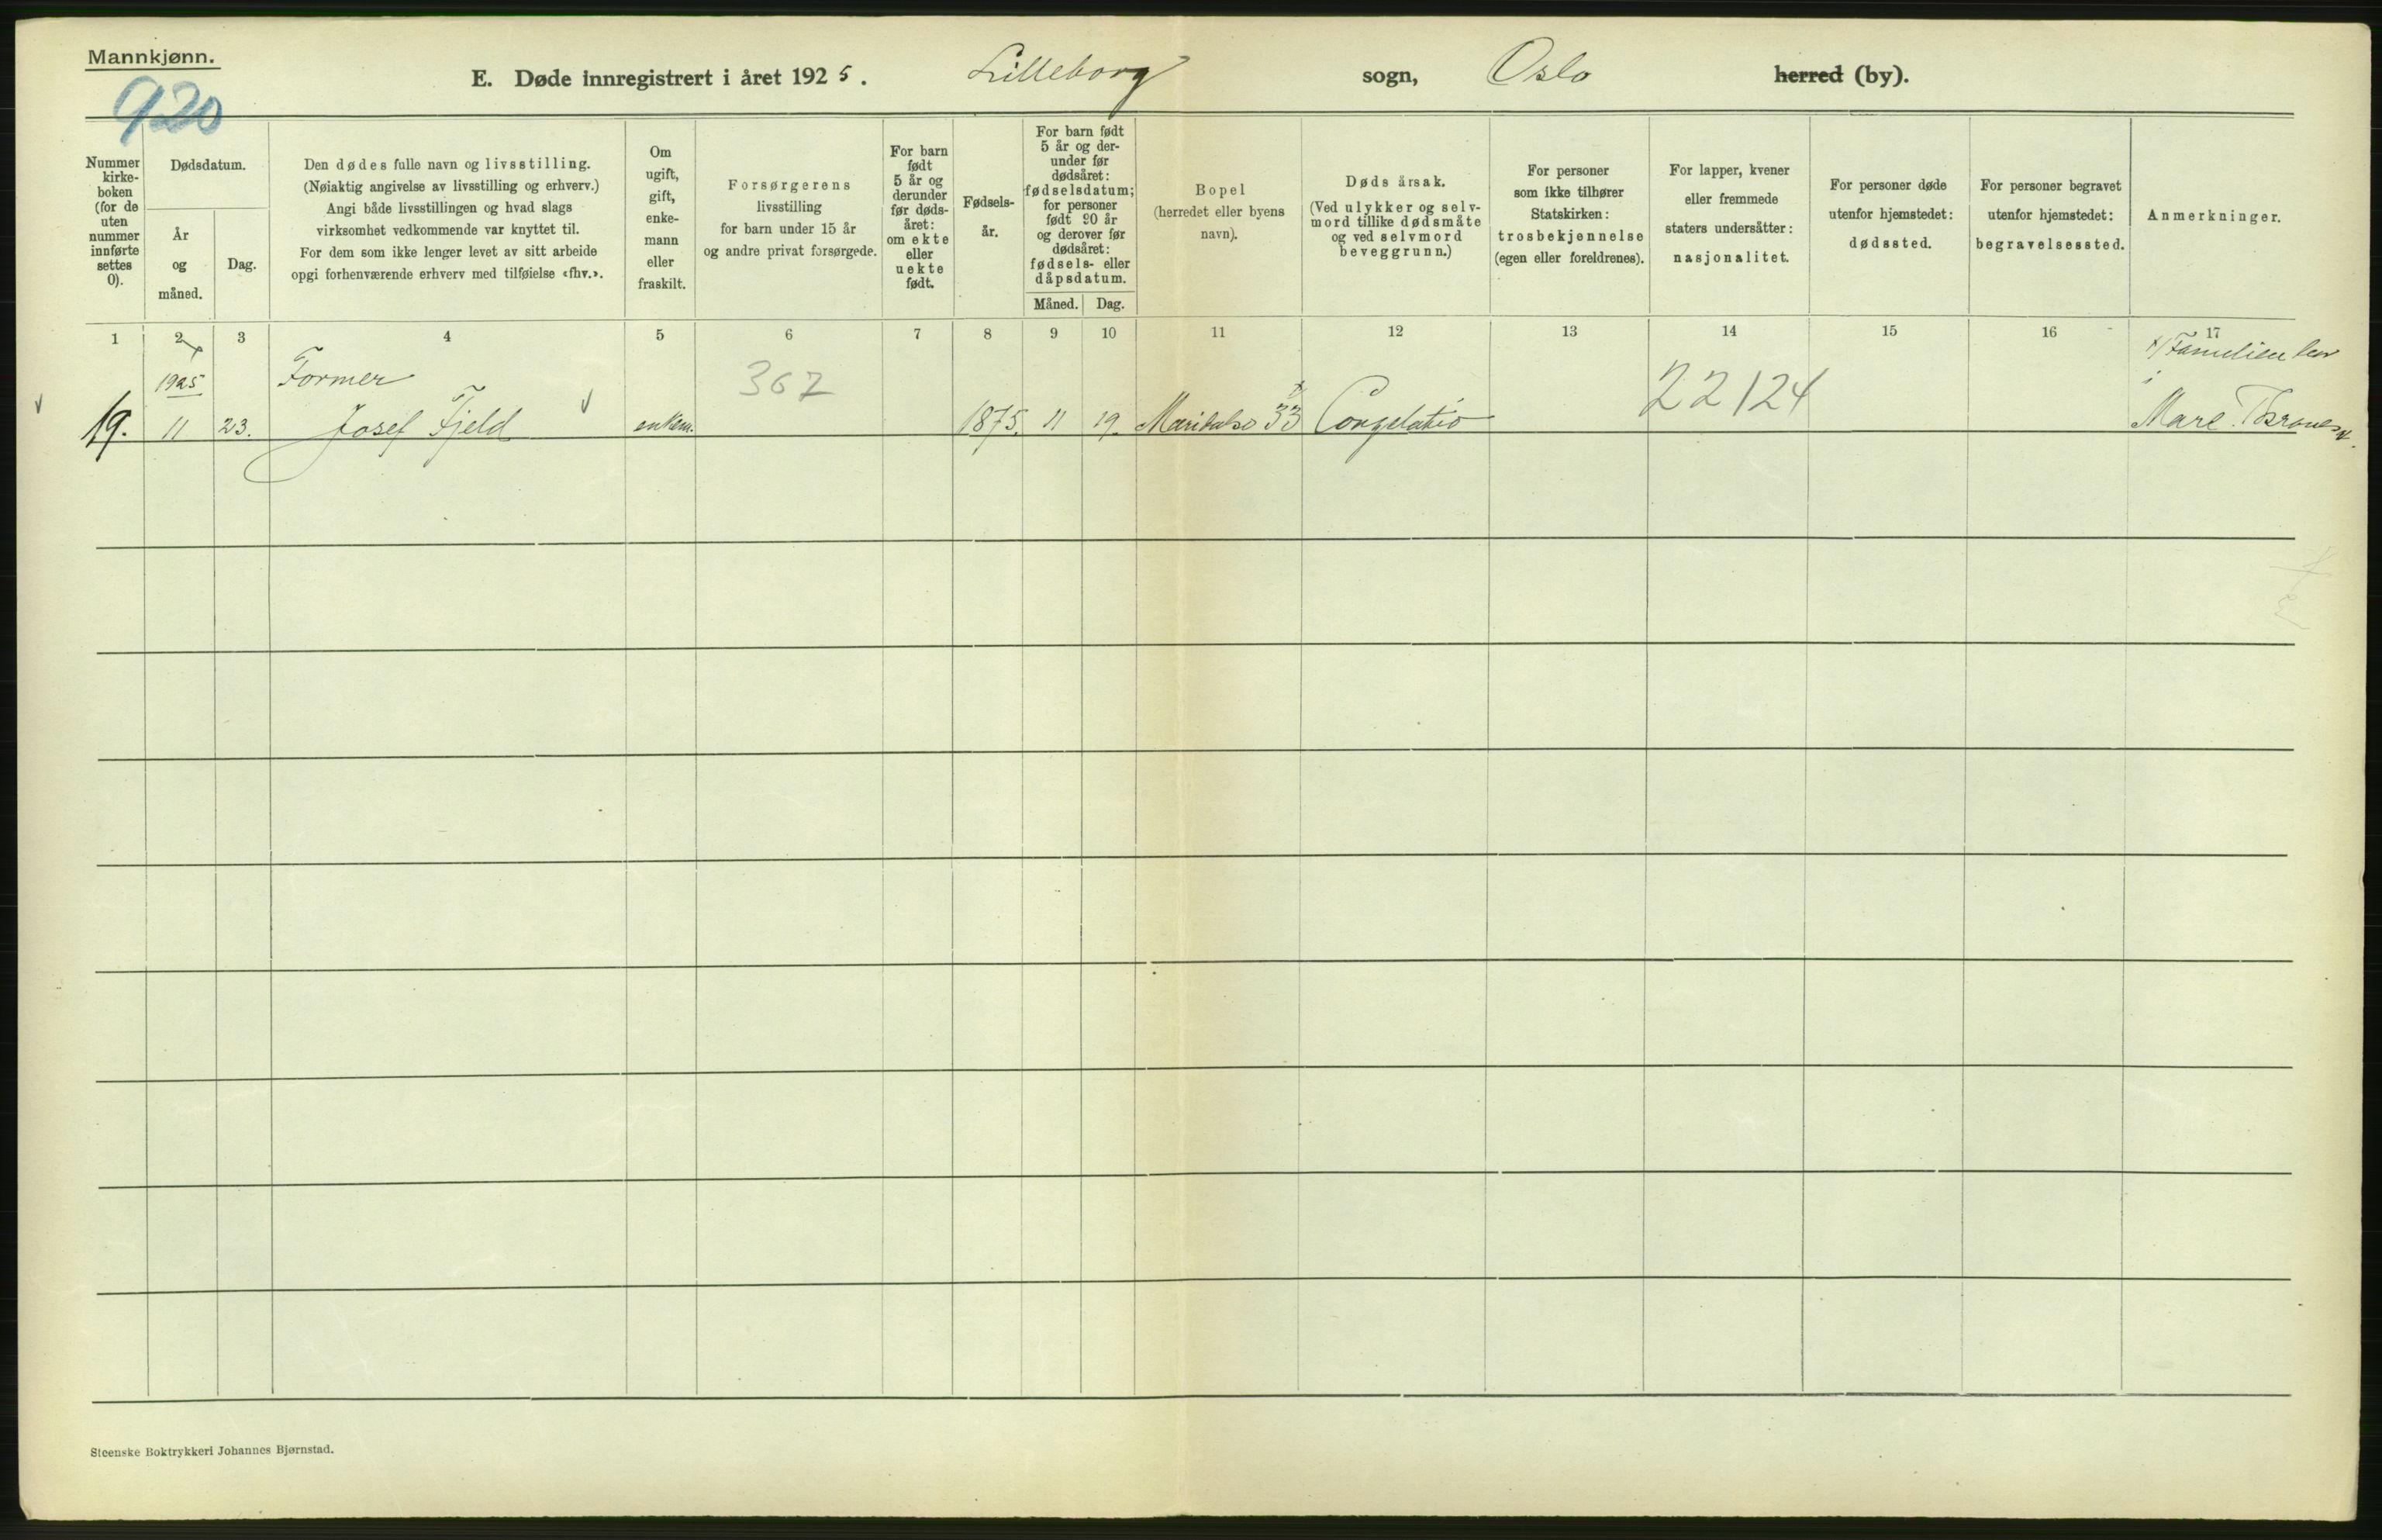 Mannkjønn.
920
E. Døde innregistrert i året 1925. Lilleborg sogn, Oslo herred (by).
Nummer
kirke-
boken
(for de
uten
nummer
innførte
settes
0).
Dødsdatum.
År
og
måned.
Dag.
Den dødes fulle navn og livsstilling.
(Nøiaktig angivelse av livsstilling og erhverv.)
Angi både livsstillingen og hvad slags
virksomhet vedkommende var knyttet til.
For dem som ikke lenger levet av sitt arbeide
opgi forhenværende erhverv med tilføielse «fhv.».
Om
ugift,
gift,
enke-
mann
eller
fraskilt.
Forsørgerens
livsstilling
for barn under 15 år
og andre privat forsørgede.
For barn
født
5 år og
derunder
før døds-
året:
om ekte
eller
uekte
født.
Fødsels-
år.
For barn født
5 år og der-
under før
dødsåret:
fødselsdatum;
for personer
født 90 år
og derover før
dødsåret:
fødsels- eller
dåpsdatum.
Måned. Dag.
Bopel
(herredet eller byens
navn).
Døds årsak.
(Ved ulykker og selv-
mord tillike dødsmåte
og ved selvmord
beveggrunn.)
For personer
som ikke tilhører
Statskirken:
trosbekjennelse
(egen eller foreldrenes).
For lapper, kvener
eller fremmede
staters undersåtter:
nasjonalitet.
For personer døde
utenfor hjemstedet:
dødssted.
For personer begravet
utenfor hjemstedet:
begravelsessted.
Anmerkninger.
1 2 3 4 5 6 7 8 9 10 11 12 13 14 15 16 17
1925 Former 367 22124 Familien
19. 11 23. Josef Fjeld enkem. 1875. 11 19. 33 Congelatio
Steenske Boktrykkeri Johannes Bjørnstad.